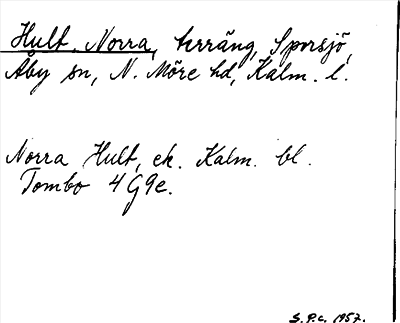 Hult, Norra, terräng, Sporsjö,
Åby sn, N. Möre hd, Kalm. l.
Norra Hult, ek. Kalm. bl.
Tombo 4G9e.
S.P.c. 1957.